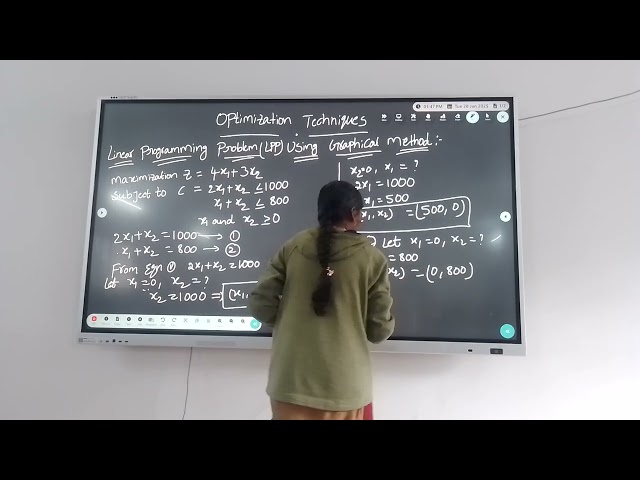 Optimization Techniques
Linear Programming Problem (LPP) Using Graphical Method:-
maximization Z = 4x₁+3x₂
Subject to C = 2x₁+x₂ ≤1000
x₁+x₂ ≤ 800
x₁ and x₂ ≥0
2x₁+x₂ = 1000 → ①
x₁+x₂ = 800 → ②
From Eqn ① 2x₁+x₂ = 1000
let x₁=0, x₂ = ?
x₂ = 1000 ⇒ (x₁,
x₂=0, x₁ = ?
2x₁ = 1000
x₁ = 500
x₁, x₂) = (500, 0)
Let x₁=0, x₂ = ?
= 800
x₂) = (0, 800)